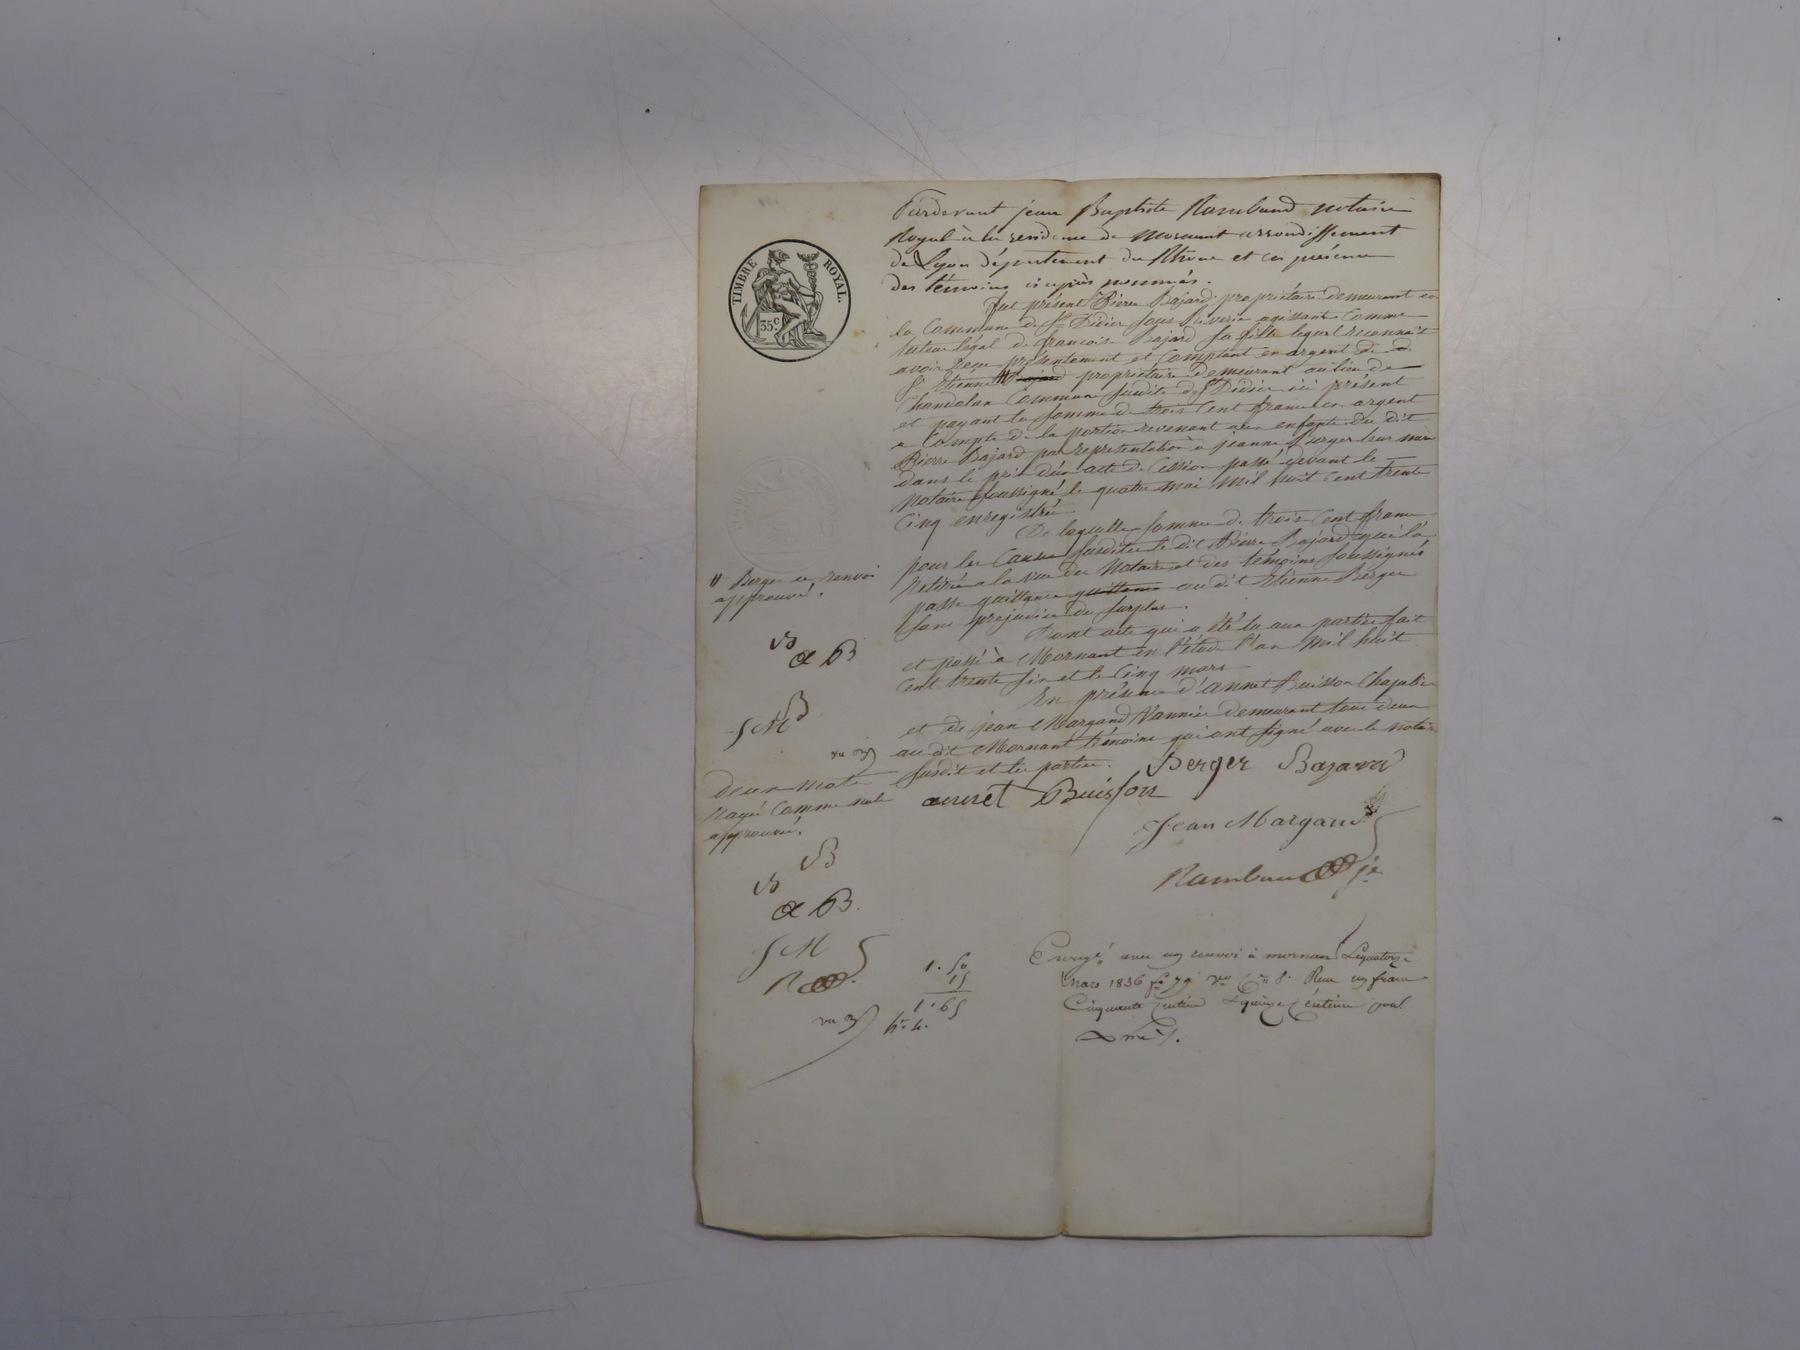 TIMBRE ROYAL.
35c
Pardevant jean Baptiste Rambaud notaire
Royal à la residence de Mornant arrondissement
de Lyon département du Rhône et en présence
des témoins ci après nommés.
fut présent Pierre Bajard propriétaire demeurant en
la Commune de St Didier sous Riverie agissant Comme
tuteur légal de francois Bajard sa fille lequel reconnait
avoir Reçu présentement et Comptant en argent de
Sr Etienne # Bajard propriétaire demeurant au lieu de
Commune susdite de St Didier ici présent
et payant la somme de trois Cent francs en argent
a Compte de la portion revenant aux enfants du dit
Pierre Bajard par représentation à jeanne Berger leur mère
dans le prix d'un acte de Cession passé devant le
Notaire soussigné le quatre mai Mil huit Cent trente
Cinq enregistré
De laquelle somme de trois Cent francs
pour les Causes susdites le dit Pierre Bajard qui l'a
retirée a la vue du Notaire et des témoins soussignés
passe quittance quittance au dit Etienne Berger
sans préjudice du surplus.
Dont acte qui a été lu aux parties fait
et passé à Mornant en l'étude l'an Mil huit
Cent trente six et le Cinq mars
En présence d'annet Buisson Chapelier
et de jean Margand Vannier demeurant tous deux
au dit Mornant témoins qui ont signé avec le notaire
susdit et les parties.
Berger Bajard
annet Buisson
Jean Margand
Rambaud
# Berger en renvoi
approuvé.
B
a B
J M
Deux mots
Rayés Comme nuls
approuvés.
B
a B.
J M
R
1. 50
15
1. 65
Enregé avec un renvoi à mornant Le quatorze
Mars 1836 fo 79 vo Ce 8. Reçu un franc
Cinquante Centimes & quinze Centimes pour